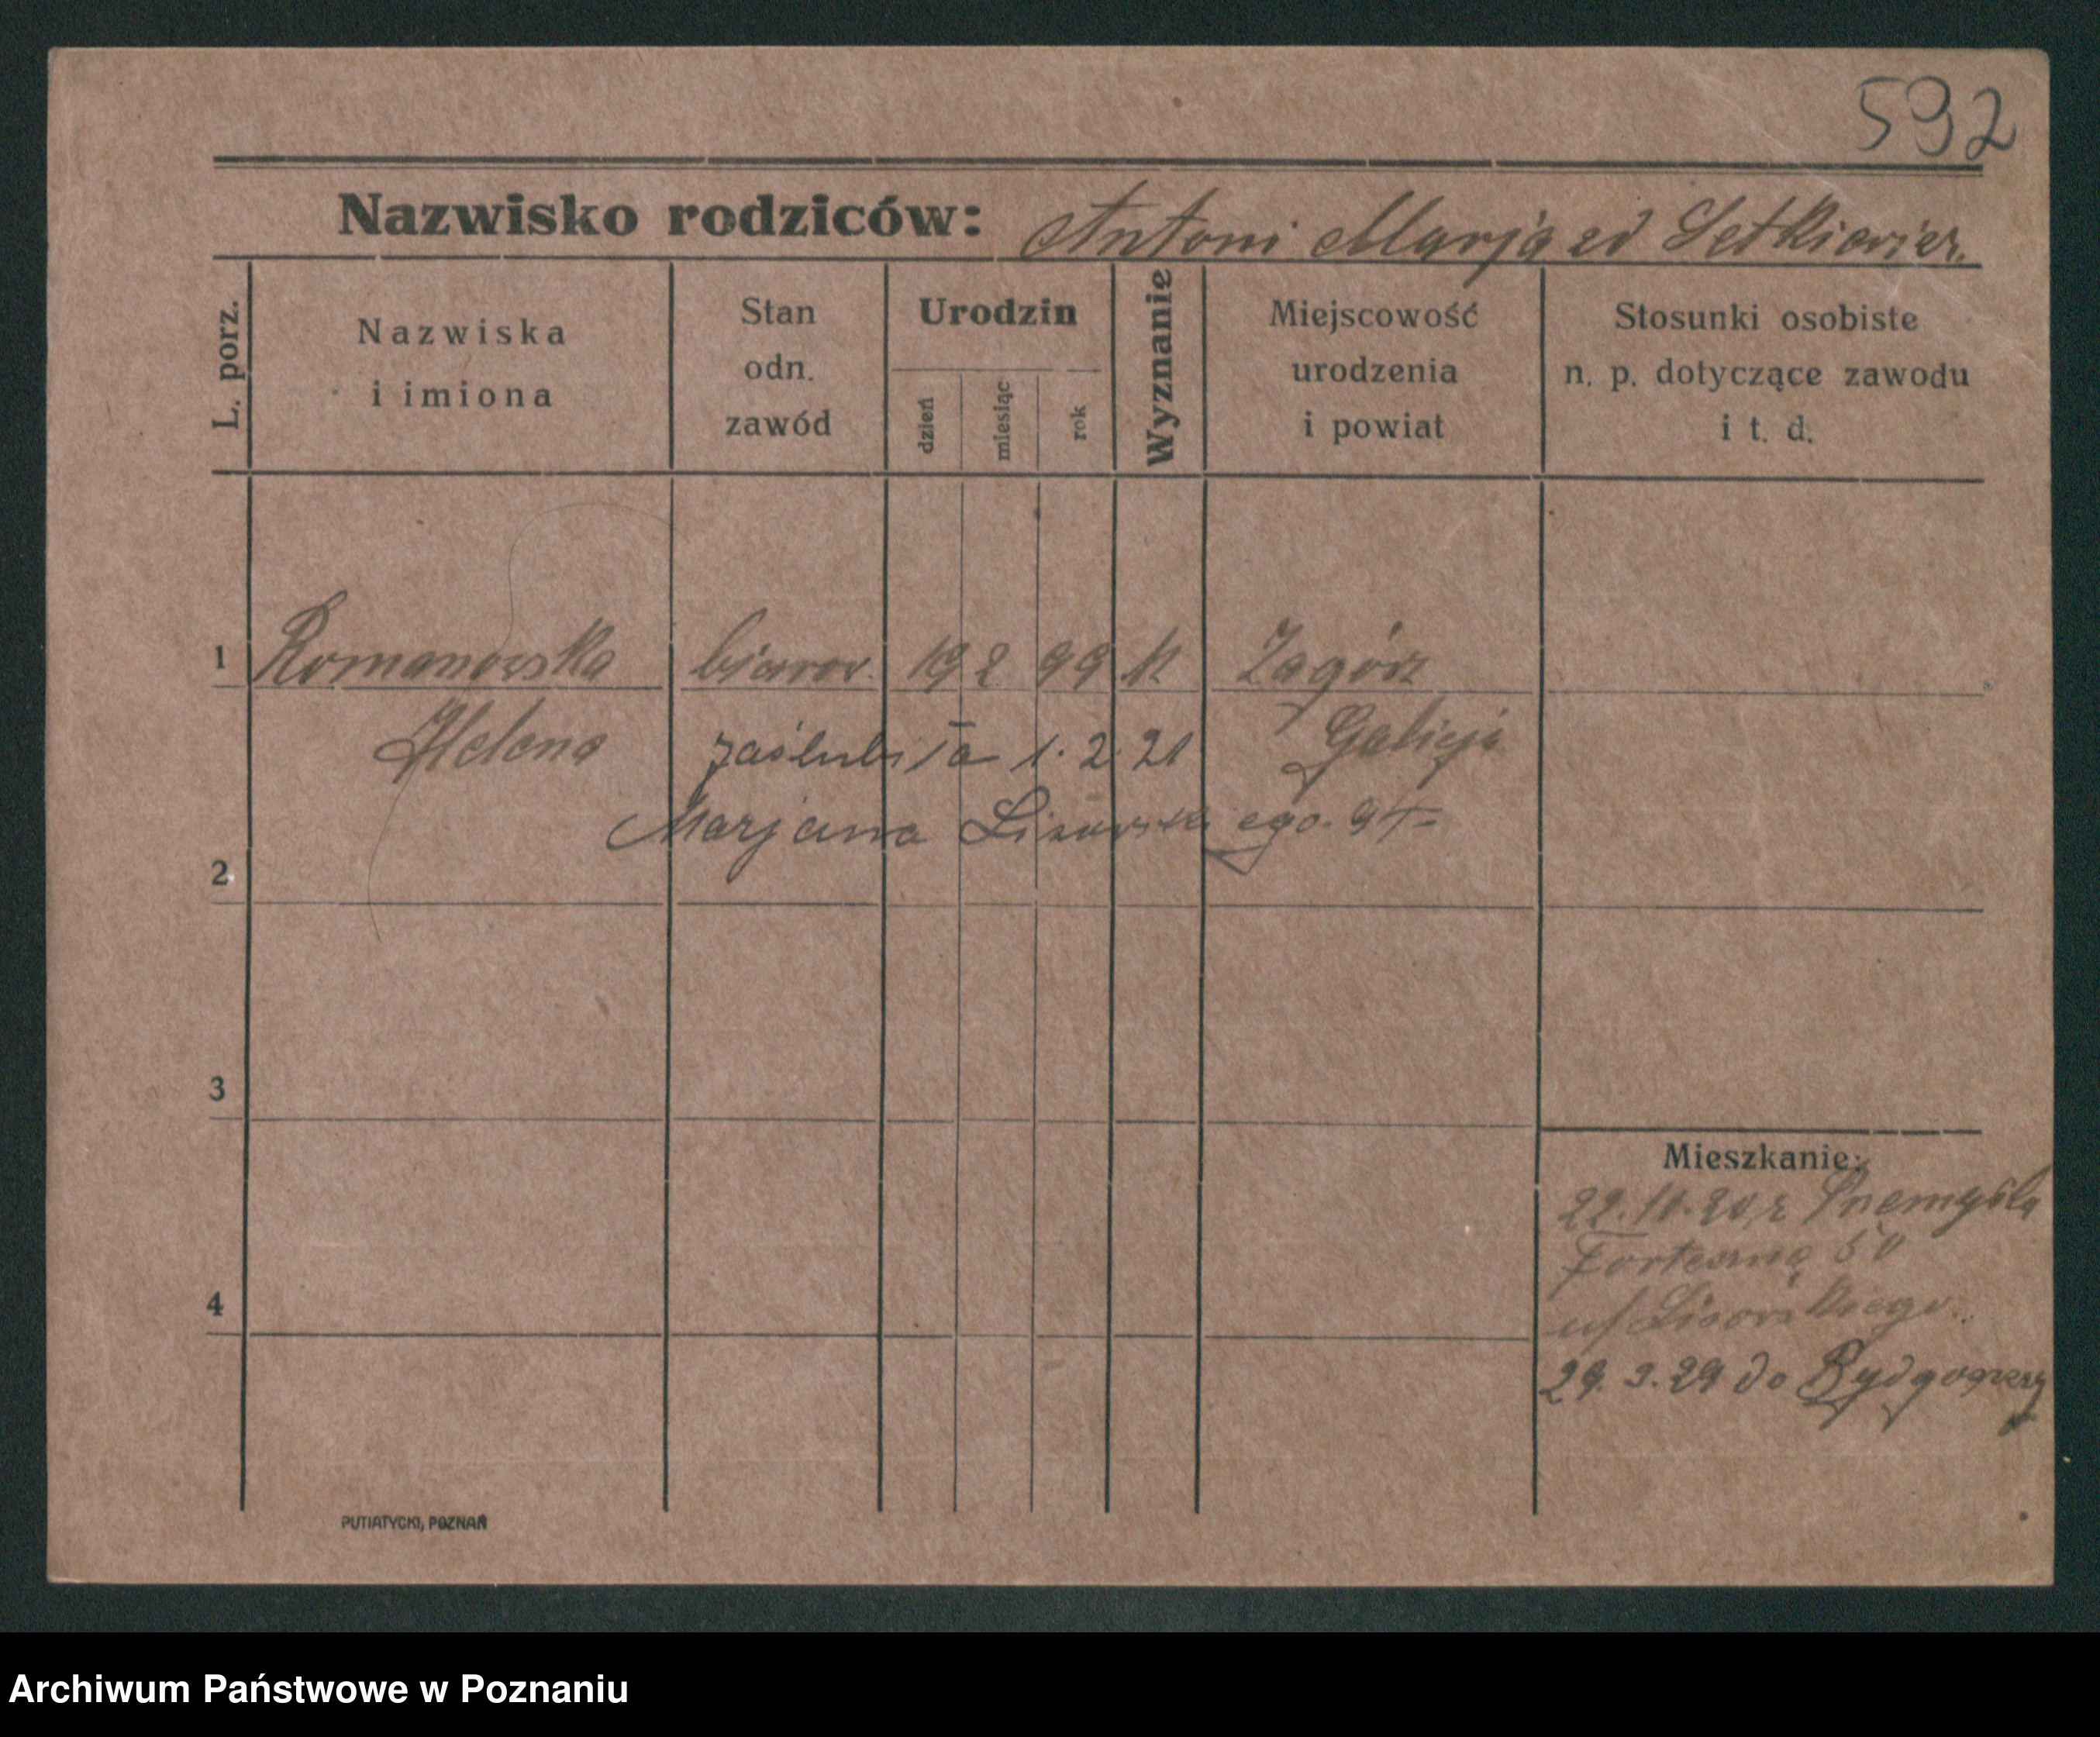 592
Nazwisko rodziców: Antoni Marja zd Setkiewicz.
L. porz.
Nazwiska i imiona
Stan odn. zawód
Urodzin
dzień
miesiąc
rok
Wyznanie
Miejscowość urodzenia i powiat
Stosunki osobiste n. p. dotyczące zawodu i t. d.
1 Romanowska biurow. 19 2 99 k Zagórz
Helena zaślubiła 1. 2. 21 Galicja
2 Marjana Lisowskiego
3
4
Mieszkanie:
22.11.20 z Przemyśla
Forteczna
u/ Lisowskiego.
29. 3. 29 do Bydgoszczy
PUTIATYCKI, POZNAŃ
Archiwum Państwowe w Poznaniu